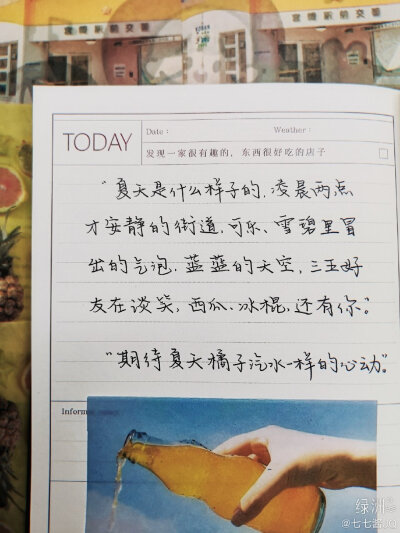 TODAY
Date:
Weather:
发现一家很有趣的，东西很好吃的店子
“夏天是什么样子的，凌晨两点
才安静的街道，可乐、雪碧里冒
出的气泡，蓝蓝的天空，三五好
友在谈笑，西瓜、冰棍，还有你。”
“期待夏天橘子汽水一样的心动”。
Inform
绿洲
@七七酱UQ